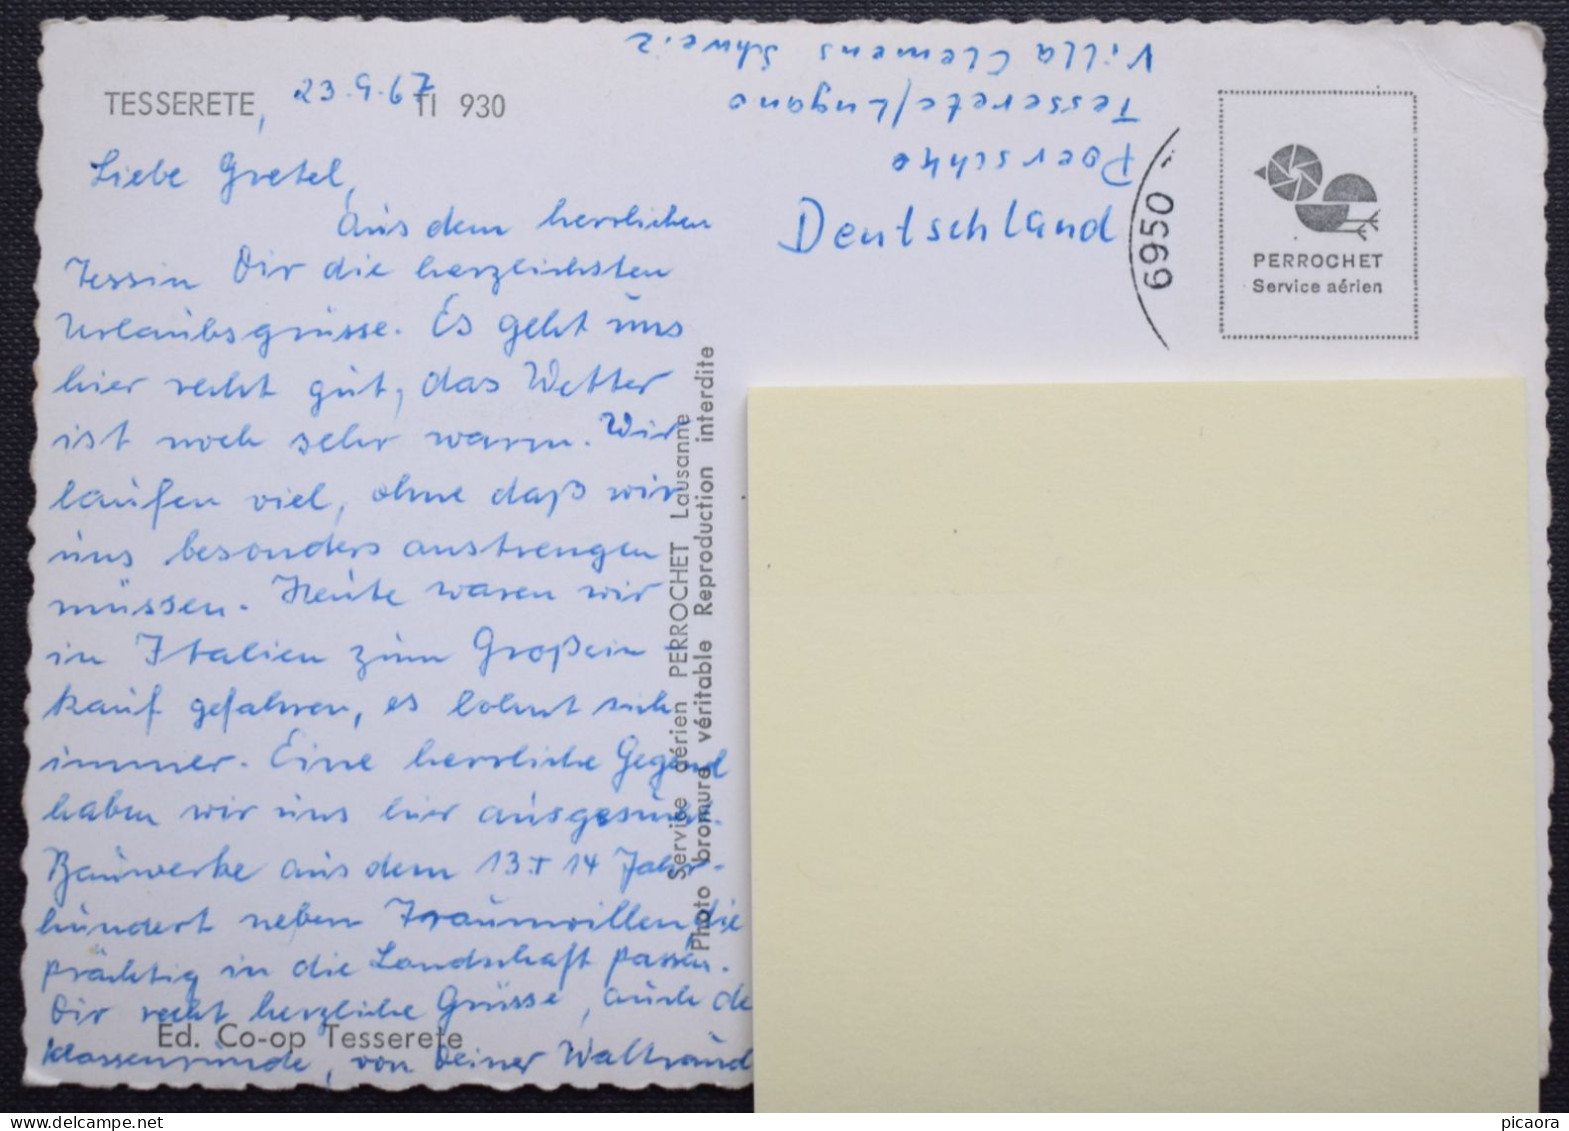 TESSERETE, 23.9.67 TI 930
Liebe Gretel,
aus dem herrlichen
Tessin Dir die herzlichsten
Urlaubsgrüsse. Es geht uns
hier recht gut, das Wetter
ist noch sehr warm. Wir
laufen viel, ohne daß wir
uns besonders anstrengen
müssen. Heute waren wir
in Italien zum Großein
kauf gefahren, es lohnt sich
immer. Eine herrliche Gegend
haben wir uns hier ausgesucht.
Bauwerke aus dem 13. + 14 Jahr-
hundert neben Traumvillen, die
prächtig in die Landschaft passen.
Dir recht herzliche Grüsse, auch de
Klassenrunde, von Deiner Waltraud
Ed. Co-op Tesserete
Service aérien PERROCHET Lausanne
Photo bromure véritable Reproduction interdite
Poerschke
Tesserete/Lugano
Villa Clemens Schweiz
Deutschland
6950
PERROCHET
Service aérien
picaora